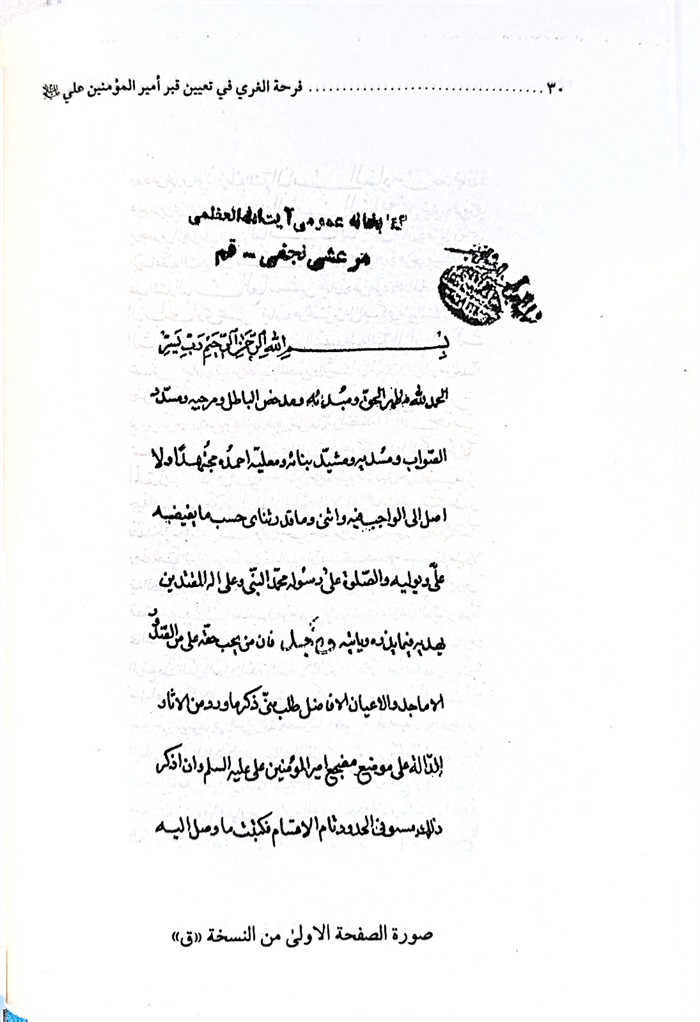 ٣٠ .................................. فرحة الغري في تعيين قبر أمير المؤمنين علي
عمومى آيت الله العظمى
مرعشى نجفى - قم
بسم الله الرحمن الرحيم رب يسر
الحمد لله مظهر الحق ومبدئه ومدحض الباطل ومرجيه ومسدد
الصواب ومسديه ومشيد بنائه ومعليه احمده مجتهدًا ولا
اصل الى الواجب فيه واثنى وما قدر ثناى حسب ما يفيضه
علىّ ويوليه والصلوة على رسوله محمد النبى وعلى اله المقتدين
بهديه فيما يذره وياتيه وبعد فان من يجب حقه على من الصدور
الاماجد والاعيان الافاضل طلب منى ذكر ما ورد من الاثار
الدالة على موضع مضجع امير المؤمنين على عليه السلم وان اذكر
ذلك مستوفى الحدود تام الاقسام فكتبت ما وصل اليه
صورة الصفحة الاولىٰ من النسخة «ق»